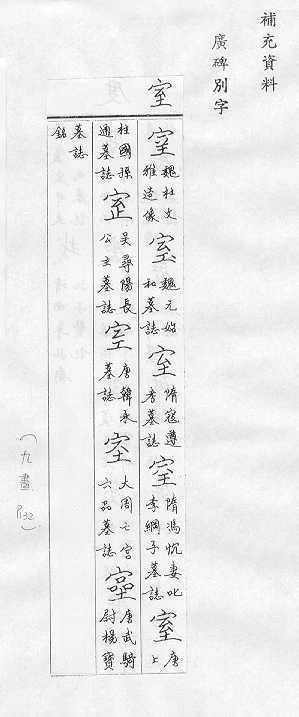 補充資料
廣碑別字
室
室魏杜文雅造像室魏元始和墓誌室隋寇遵考墓誌室隋馮忱妻叱李綱子墓誌室唐上
柱國孫通墓誌室吳尋陽長公主墓誌室唐韓承墓誌室大周七宮六品墓誌室唐武騎尉楊寶
墓誌銘
(九畫 P132)